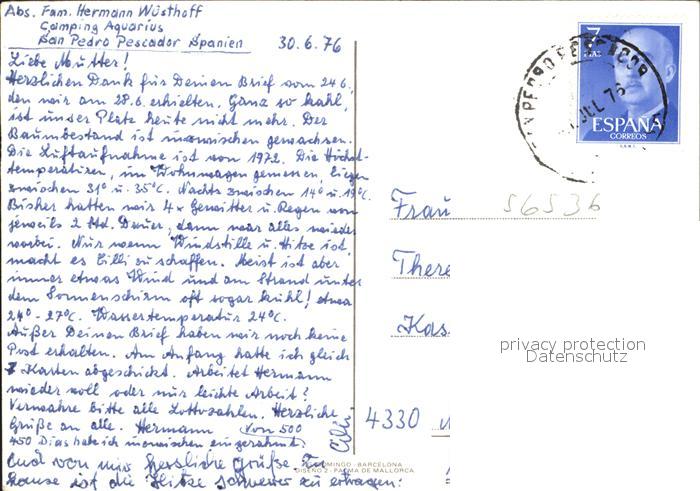 Abs. Fam. Hermann Wüsthoff
Camping Aquarius
San Pedro Pescador Spanien 30.6.76
Liebe Mutter!
Herzlichen Dank für Deinen Brief vom 24.6.
den wir am 28.6. erhielten. Ganz so kahl,
ist unser Platz heute nicht mehr. Der
Baumbestand ist inzwischen gewachsen.
Die Luftaufnahme ist von 1972. Die Höchst-
temperaturen, im Wohnwagen gemessen, liegen
zwischen 31° u. 35°C. Nachts zwischen 14° u. 19°C.
Bisher hatten wir 4x Gewitter u. Regen von
jeweils 2 Std. Dauer, dann war alles wieder
vorbei. Nur wenn Windstille u. Hitze ist,
macht es Cilli zu schaffen. Meist ist aber
immer etwas Wind und am Strand unter
dem Sonnenschirm oft sogar kühl! etwa
24° - 27°C. Wassertemperatur 24°C.
Außer Deinen Brief haben wir noch keine
Post erhalten. Am Anfang hatte ich gleich
7 Karten abgeschickt. Arbeitet Hermann
wieder voll oder nur leichte Arbeit?
Verwahre bitte alle Lottozahlen. Herzliche
Grüße an alle. Hermann von 500
450 Dias habe ich inzwischen eingerahmt!
Cilli
und von mir herzliche Grüße. Zu
hause ist die Hitze schwerer zu ertragen.
7
PTAS
ESPAÑA
CORREOS
SAN PEDRO PESCADOR
JUL 76
56536
Frau
There
Kas
privacy protection
Datenschutz
4330
DOMINGO - BARCELONA
DISEÑO 2 - PALMA DE MALLORCA